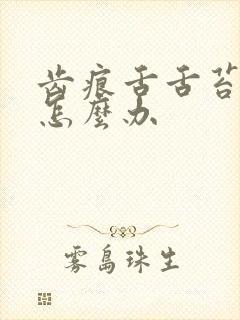 齿痕舌舌苔
怎麼办
雾島珠生